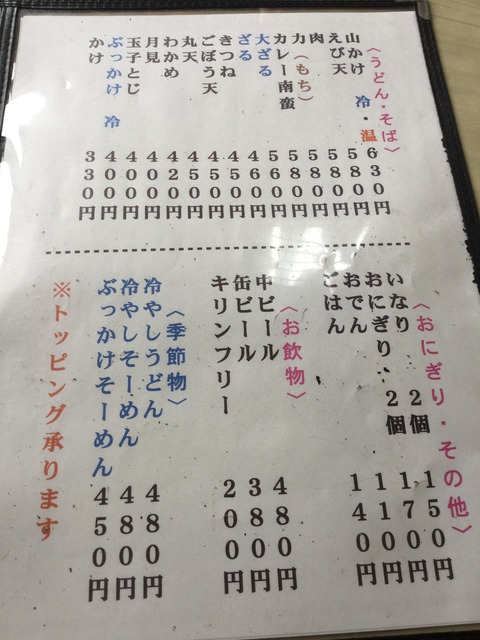 〈うどん・そば〉
山かけ 冷・温 630円
えび天 580円
肉 580円
力(もち) 580円
カレー南蛮 580円
大ざる 560円
ざる 460円
きつね 450円
ごぼう天 450円
丸天 450円
わかめ 420円
月見 400円
玉子とじ 400円
ぶっかけ 冷 400円
かけ 330円
〈おにぎり・その他〉
いなり 2個 150円
おにぎり 2個 170円
おでん 110円
ごはん 140円
〈お飲物〉
中ビール 480円
缶ビール 380円
キリンフリー 200円
〈季節物〉
冷やしうどん 480円
冷やしそーめん 480円
ぶっかけそーめん 450円
※トッピング承ります